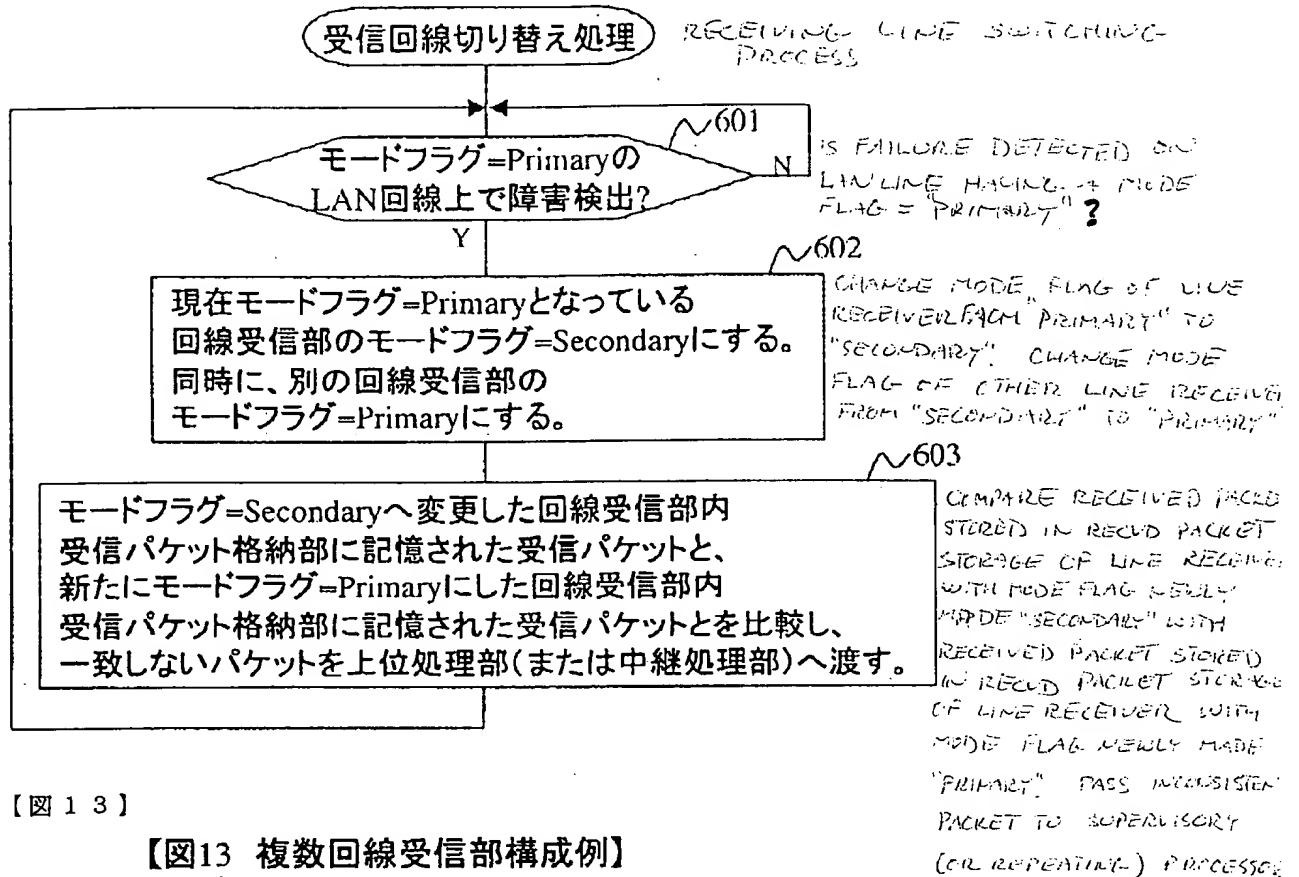 受信回線切り替え処理
RECEIVING LINE SWITCHING
PROCESS
601
モードフラグ=Primaryの
LAN回線上で障害検出?
N
Y
IS FAILURE DETECTED ON
LAN LINE HAVING A MODE
FLAG = "PRIMARY" ?
602
現在モードフラグ=Primaryとなっている
回線受信部のモードフラグ=Secondaryにする。
同時に、別の回線受信部の
モードフラグ=Primaryにする。
CHANGE MODE FLAG OF LINE
RECEIVER FROM "PRIMARY" TO
"SECONDARY". CHANGE MODE
FLAG OF OTHER LINE RECEIVER
FROM "SECONDARY" TO "PRIMARY"
603
モードフラグ=Secondaryへ変更した回線受信部内
受信パケット格納部に記憶された受信パケットと、
新たにモードフラグ=Primaryにした回線受信部内
受信パケット格納部に記憶された受信パケットとを比較し、
一致しないパケットを上位処理部(または中継処理部)へ渡す。
COMPARE RECEIVED
STORED IN RECVD PACKET
STORAGE OF LINE
WITH MODE FLAG NEWLY
MADE "SECONDARY" WITH
RECEIVED PACKET STORED
IN RECVD PACKET
OF LINE RECEIVER WITH
MODE FLAG NEWLY MADE
"PRIMARY". PASS
PACKET TO SUPERVISORY
(OR REPEATING)
【図13】
【図13 複数回線受信部構成例】